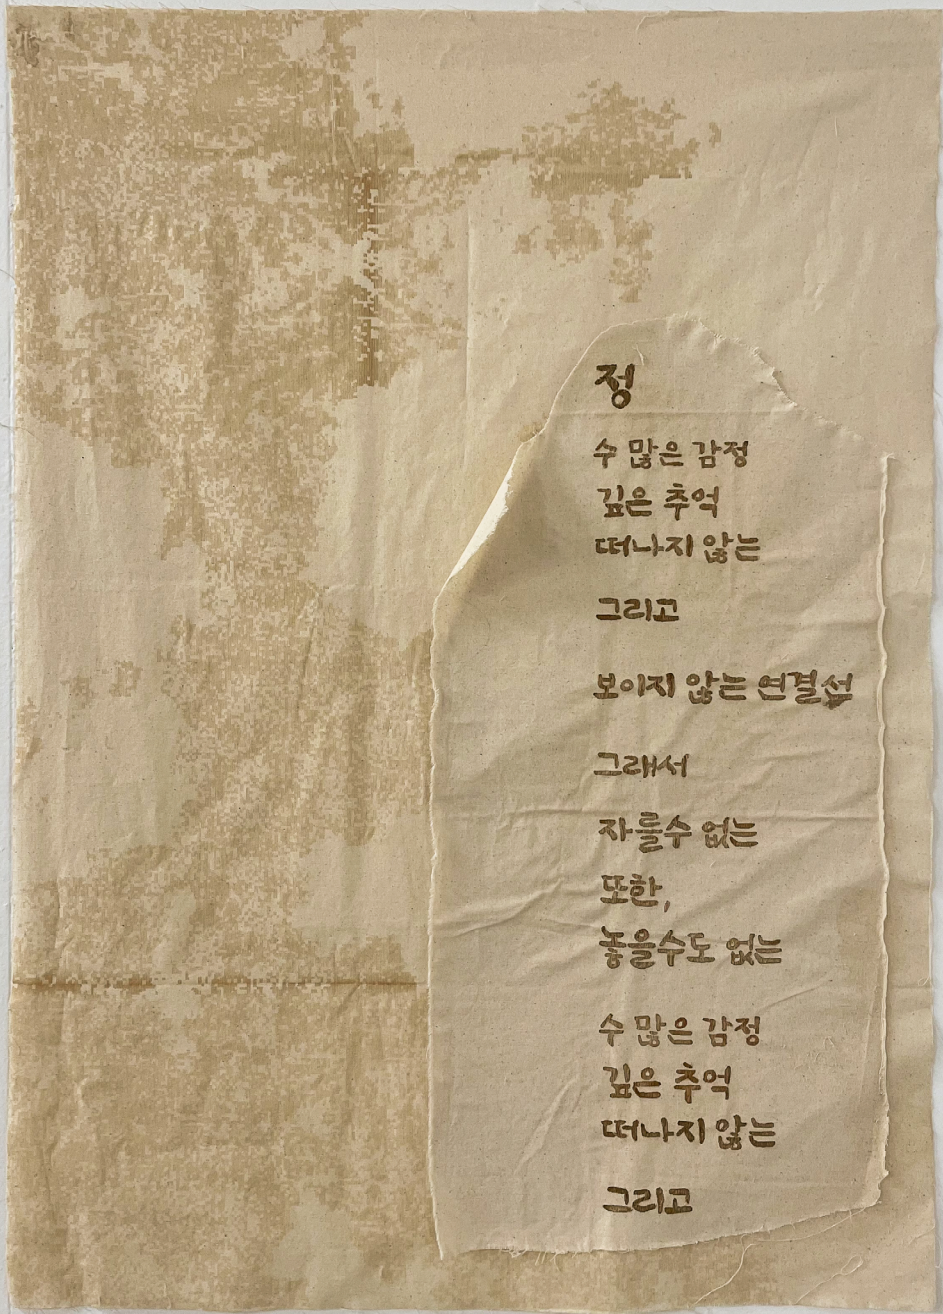 정
수 많은 감정
깊은 추억
떠나지 않는
그리고
보이지 않는 연결선
그래서
자를수 없는
또한,
놓을수도 없는
수 많은 감정
깊은 추억
떠나지 않는
그리고